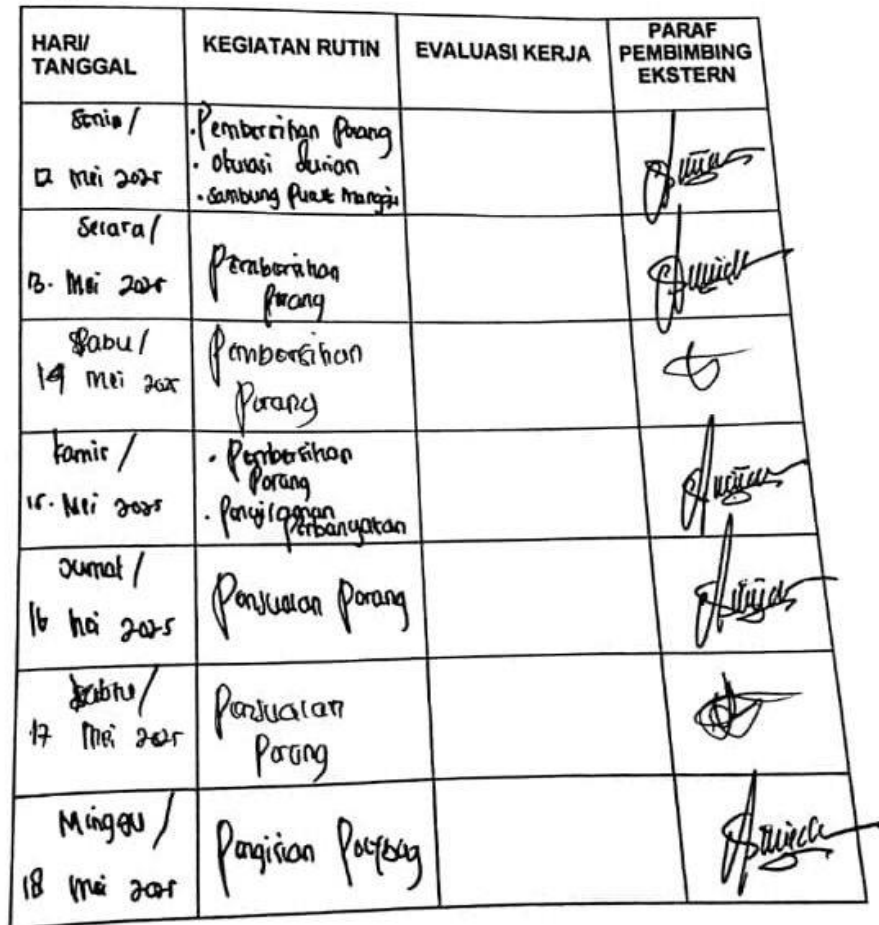 HARI/
TANGGAL
KEGIATAN RUTIN
EVALUASI KERJA
PARAF
PEMBIMBING
EKSTERN
Senin /
12 Mei 2025
• Pembersihan Porang
• Okulasi durian
• Sambung Pucuk Mangga
Selasa /
13. Mei 2025
Pembersihan
Porang
Rabu /
14 Mei 2025
Pembersihan
Porang
Kamis /
15. Mei 2025
• Pembersihan
Porang
•
Perbanyakan
Jumat /
16 Mei 2025
Penjualan Porang
Sabtu /
17 Mei 2025
Penjualan
Porang
Minggu /
18 Mei 2025
Pengisian Polybag